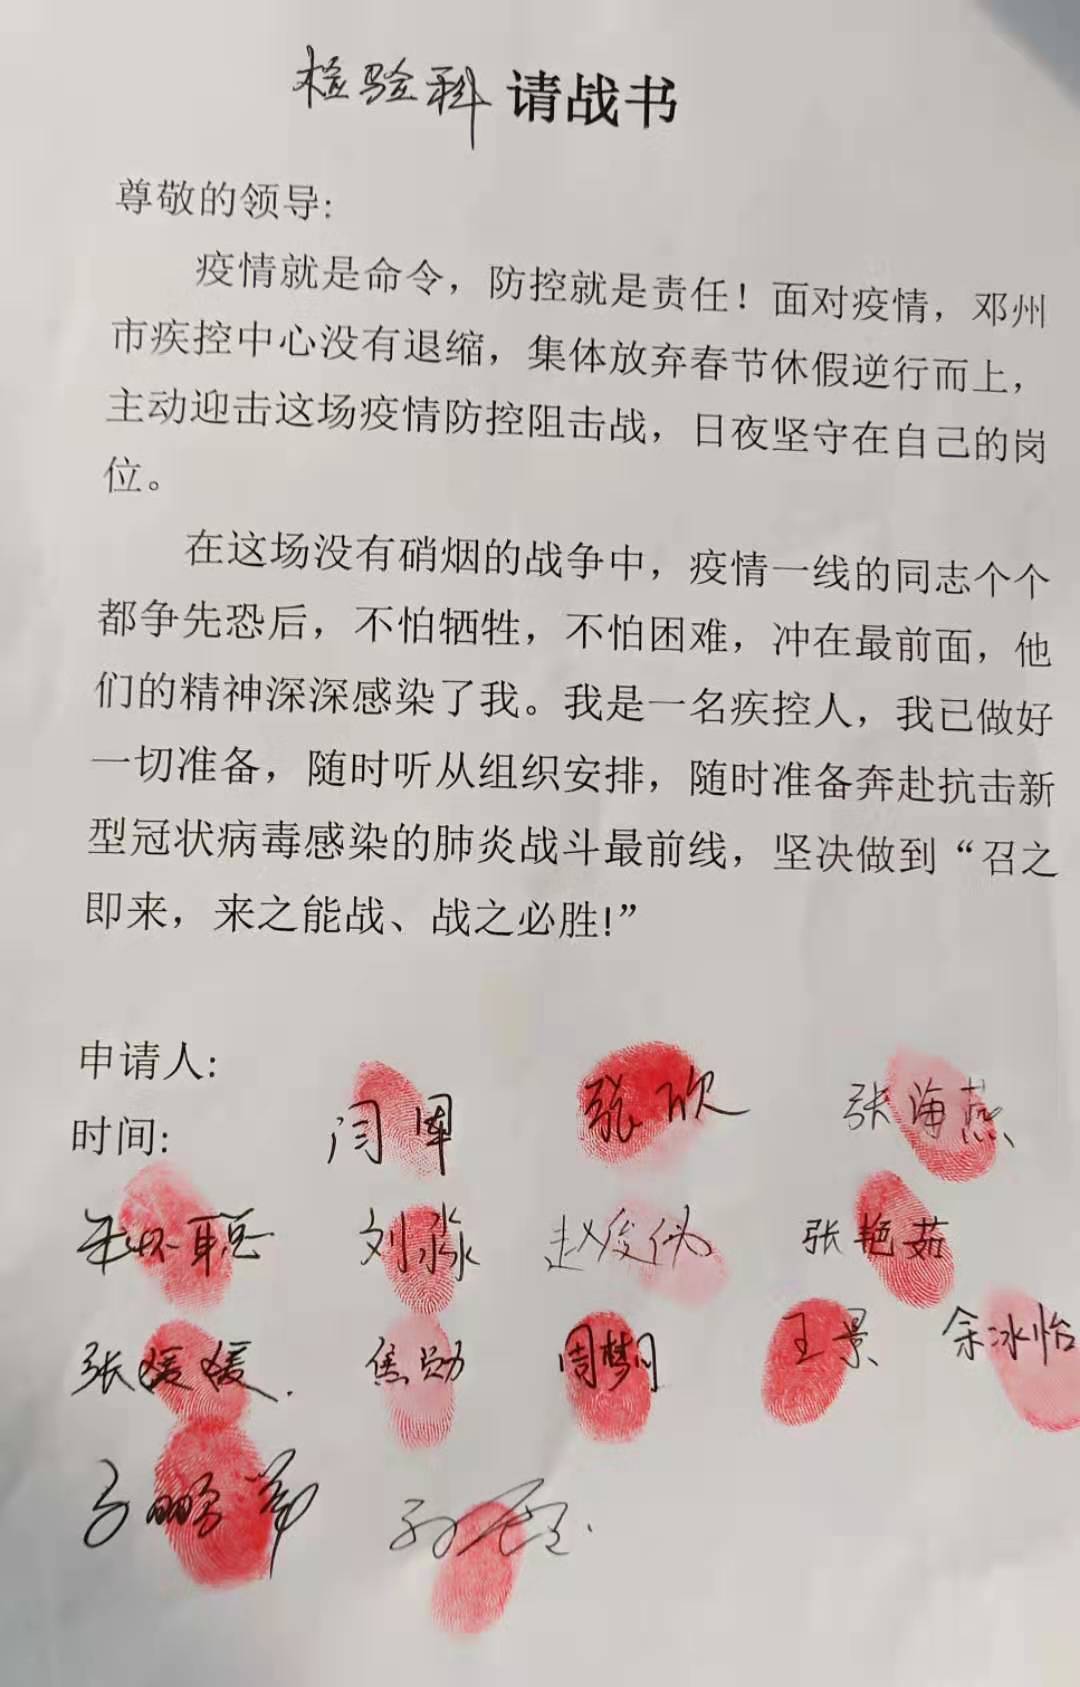 检验科 请战书
尊敬的领导:
疫情就是命令，防控就是责任！面对疫情，邓州
市疾控中心没有退缩，集体放弃春节休假逆行而上，
主动迎击这场疫情防控阻击战，日夜坚守在自己的岗
位。
在这场没有硝烟的战争中，疫情一线的同志个个
都争先恐后，不怕牺牲，不怕困难，冲在最前面，他
们的精神深深感染了我。我是一名疾控人，我已做好
一切准备，随时听从组织安排，随时准备奔赴抗击新
型冠状病毒感染的肺炎战斗最前线，坚决做到“召之
即来，来之能战、战之必胜!”
申请人:
时间:
张欣 张海燕
刘淼 赵俊 张艳茹
张媛媛. 焦勋 周梦月 王景 余冰怡